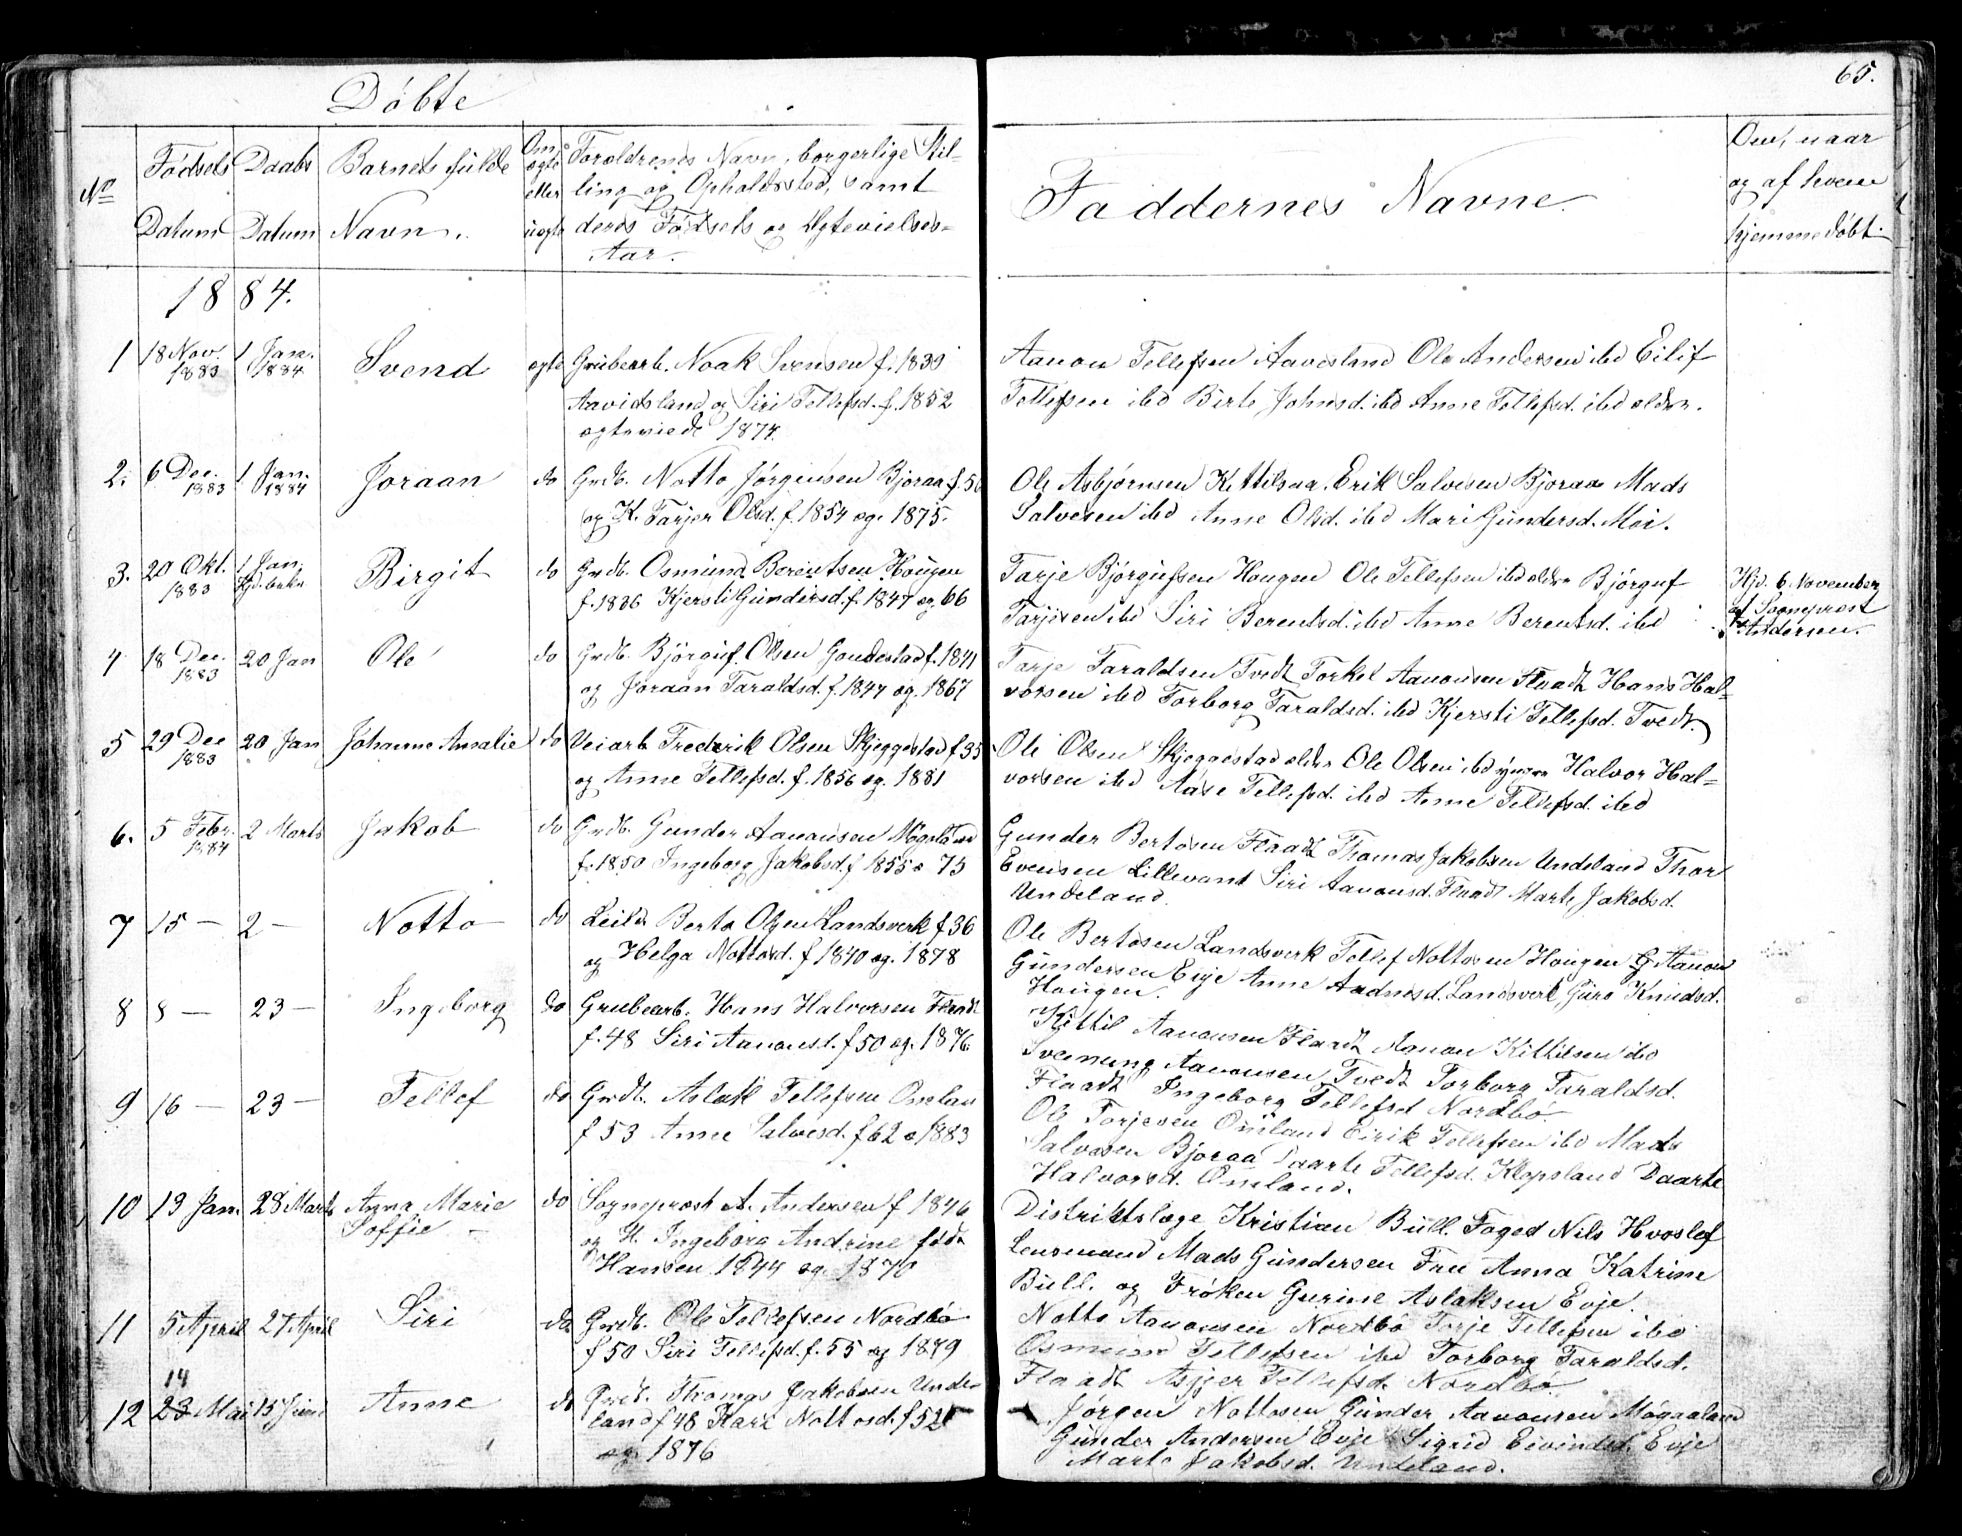 65.
Döbte
No
Födsels
Datum
Daabs
Datum
Barnets fulde
Navn.
Om
ægte
eller
uægte
Foreldrenes Navn, borgerlige Stil-
ling og Opholdssted, samt
deres Födsels og Ægtevielses-
Aar.
Faddernes Navne.
Om, naar
og af hvem
hjemmedöbt.
1884.
1 18 Nov. 1883 1 Jan. 1884 Svend ægte Grubearb. Noak Svensen f. 1839
Aavidsland og Siri Tellefsd. f. 1852
ægteviede 1874.
Aanon Tellefsen Aavesland Ole Andersen ibd Eilif
Tellefsen ibd Birte Johnsd. ibd Anne Tellefsd. ibd ældre.
2. 6 Dec. 1883 1 Jan. 1884 Joraan do Grdb. Notto Jörgensen Bjoraa f. 50
og K. Tarjer Olsd. f. 1854 æg. 1875.
Ole Asbjörnsen Kettilsaa. Erik Salvesen Bjoraa Mads
Salvesen ibd Anne Olsd. ibd Mari Gundersd. Moi.
3. 20 Okt. 1883 1 Jan. Hjd. bekr Birgit do Grdb. Osmund Berentsen Hougen
f. 1836 Kjersti Gundersd. f. 1847 æg. 66
Tarje Björgufsen Hougen Ole Tellefsen ibd ældre Björguf
Tarjesen ibd Siri Berentsd. ibd Anne Berentsd. ibd
Hjd. 6. November
af Sogneprest
Andersen.
4 18 Dec. 1883 20 Jan Ole do Grdb. Björguf Olsen Gaudestad f. 1841
og Joraan Taraldsd. f. 1847 æg. 1867
Tarje Taraldsen Tvedt Torkel Aanonsen Flaadt Hans Hal-
vorsen ibd Torborg Taraldsd. ibd Kjersti Tellefsd. Tvedt
5 29 Dec 1883 20 Jan Johanne Amalie do Veiarb Frederik Olsen Skjeggestad f 35
og Anne Tellefsd. f. 1856 æg. 1881
Ole Olsen Skjeggestad ældre Ole Olsen ibd yngre Halvor Hal-
vorsen ibd Aase Tellefsd. ibd Anne Tellefsd. ibd
6. 5 Febr. 1884 2 Marts Jakob do Grdb. Gunder Aanonsen Mögeland
f. 1850 Ingeborg Jakobsd. f 1855 æ 75
Gunder Bertosen Flaadt Thomas Jakobsen Undeland Thor
Evensen Lillevand Siri Aanonsd. Flaadt Marte Jakobsd.
Undeland.
7 15 — 2 — Notto do Leild. Berto Olsen Landsverk f 36
og Helga Nottosd. f 1840 æg. 1878
Ole Bertosen Landsverk Tellef Nottosen Hougen Aanon
Gundersen Evje Anne Aadnesd. Landsverk Guro Knudsd.
Hougen.
8 8 — 23 — Ingeborg do Grubearb. Hans Halvorsen Flaadt
f. 48 Siri Aanonsd. f 50 æg. 1876
Kittil Aanonsen Flaadt Aanon Kittilsen ibd
Sveinung Aanonsen Tvedt Torborg Taraldsd.
Flaadt Ingeborg Tellefsd Nordbö.
9 16 — 23 — Tellef do Grdb. Aslak Tellefsen Omlan
f 53 Anne Salvesd. f 62 æ 1883
Ole Torjesen Omland Eirik Tellefsen ibd Mads
Salvesen Bjoraa Daarte Tellefsd. Klepsland Daarte
Halvorsd. Omland.
10 19 Jan. 28 Marts Anna Marie
Soffie do Sogneprest A. Andersen f 1846
og H. Ingeborg Andrine född
Hansen 1844 æg. 1870
Distriktslæge Kristian Bull. Foged Nils Hvoslef
Lensmand Mads Gundersen Fru Anna Katrine
Bull. og Fröken Gurine Aslaksen Evje.
11 5 April 27 April Siri do Grdb. Ole Tellefsen Nordbö
f 50 Siri Tellefsd. f. 55 æg 1879
Notto Aanonsen Nordbö Tarje Tellefsen ibd
Osmund Tellefsen ibd Torborg Taraldsd.
Flaadt Asjer Tellefsd. Nordbö.
14
12 23 Mai 15 Juni Anne do Grdb. Thomas Jakobsen Unde-
land f 48 Kari Nottosd. f 52
æg. 1876
Jörgen Nottosen Gunder Aanonsen Mögaaland
Gunder Andersen Evje Sigrid Eivindsd. Evje
Marte Jakobsd. Undeland.